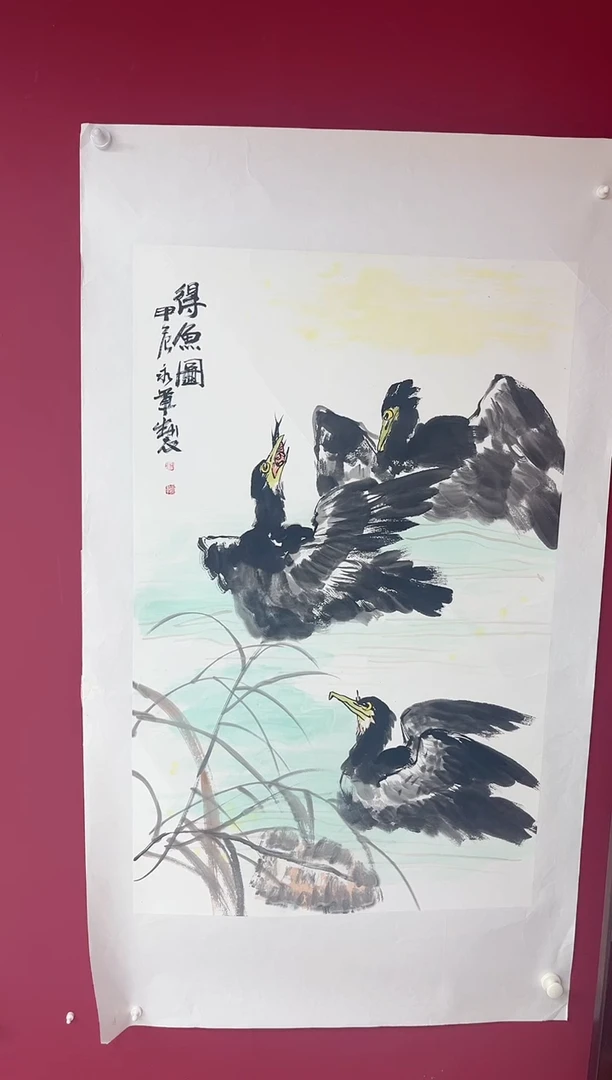 得魚圖
甲辰永軍製